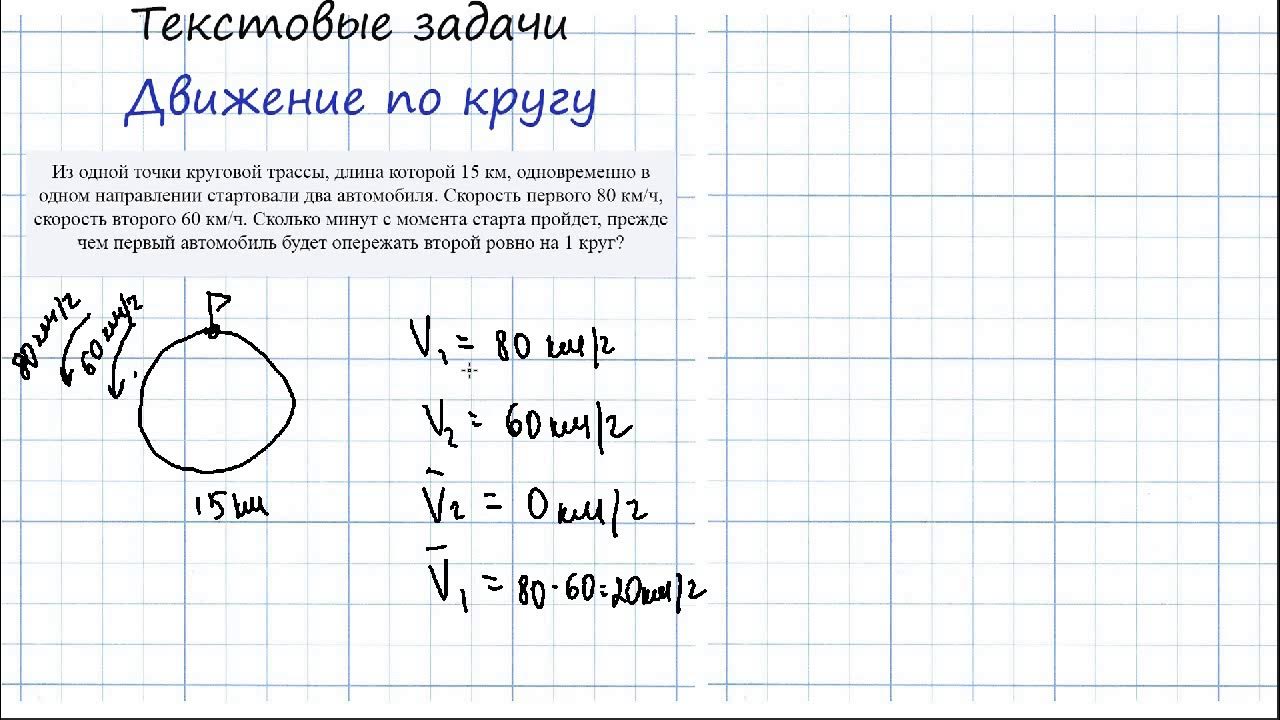 Текстовые задачи
Движение по кругу
Из одной точки круговой трассы, длина которой 15 км, одновременно в
одном направлении стартовали два автомобиля. Скорость первого 80 км/ч,
скорость второго 60 км/ч. Сколько минут с момента старта пройдет, прежде
чем первый автомобиль будет опережать второй ровно на 1 круг?
80 км/ч
60 км/ч
15 км
V₁ = 80 км/ч
V₂ = 60 км/ч
V̄₂ = 0 км/ч
V̄₁ = 80 - 60 = 20 км/ч